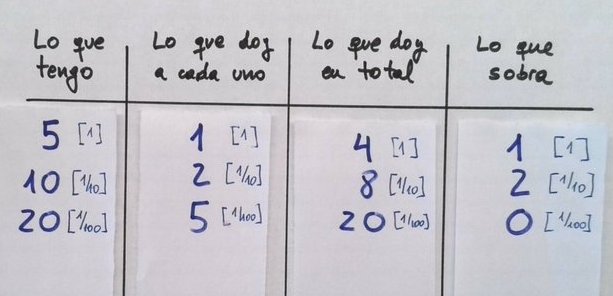 Lo que tengo
Lo que doy a cada uno
Lo que doy en total
Lo que sobra
5 [1] 1 [1] 4 [1] 1 [1]
10 [1/10] 2 [1/10] 8 [1/10] 2 [1/10]
20 [1/100] 5 [1/100] 20 [1/100] 0 [1/100]